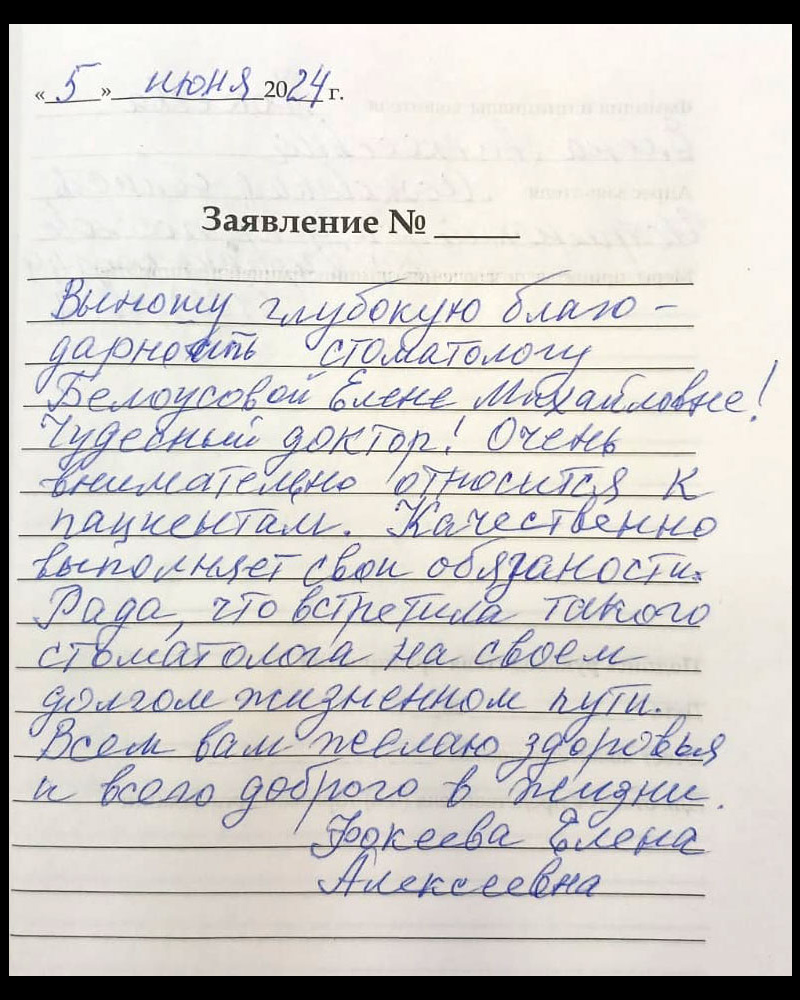 «5» июня 2024 г.
Заявление №
Выношу глубокую благо-
дарность стоматологу
Белоусовой Елене Михайловне!
Чудесный доктор! Очень
внимательно относится к
пациентам. Качественно
выполняет свои обязаности.
Рада, что встретила такого
стоматолога на своем
долгом жизненном пути.
Всем вам желаю здоровья
и всего доброго в жизни.
Фокеева Елена
Алексеевна